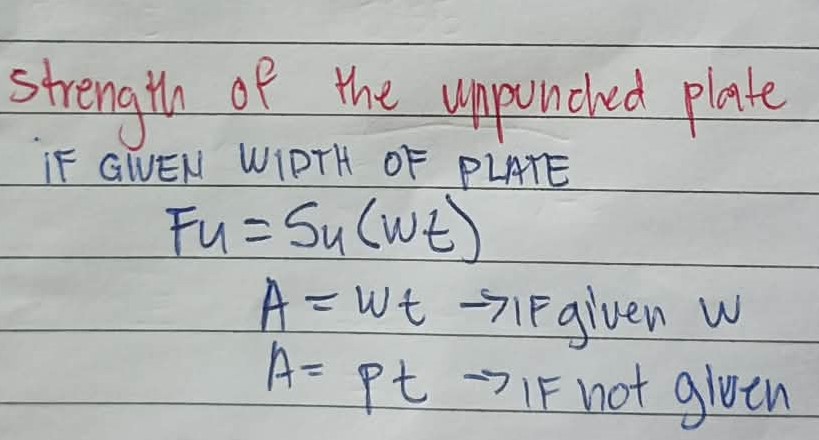 strength of the unpunched plate
iF GIVEN WIDTH OF PLATE
Fu = Su (wt)
A = wt → IF given w
A = pt → IF not given